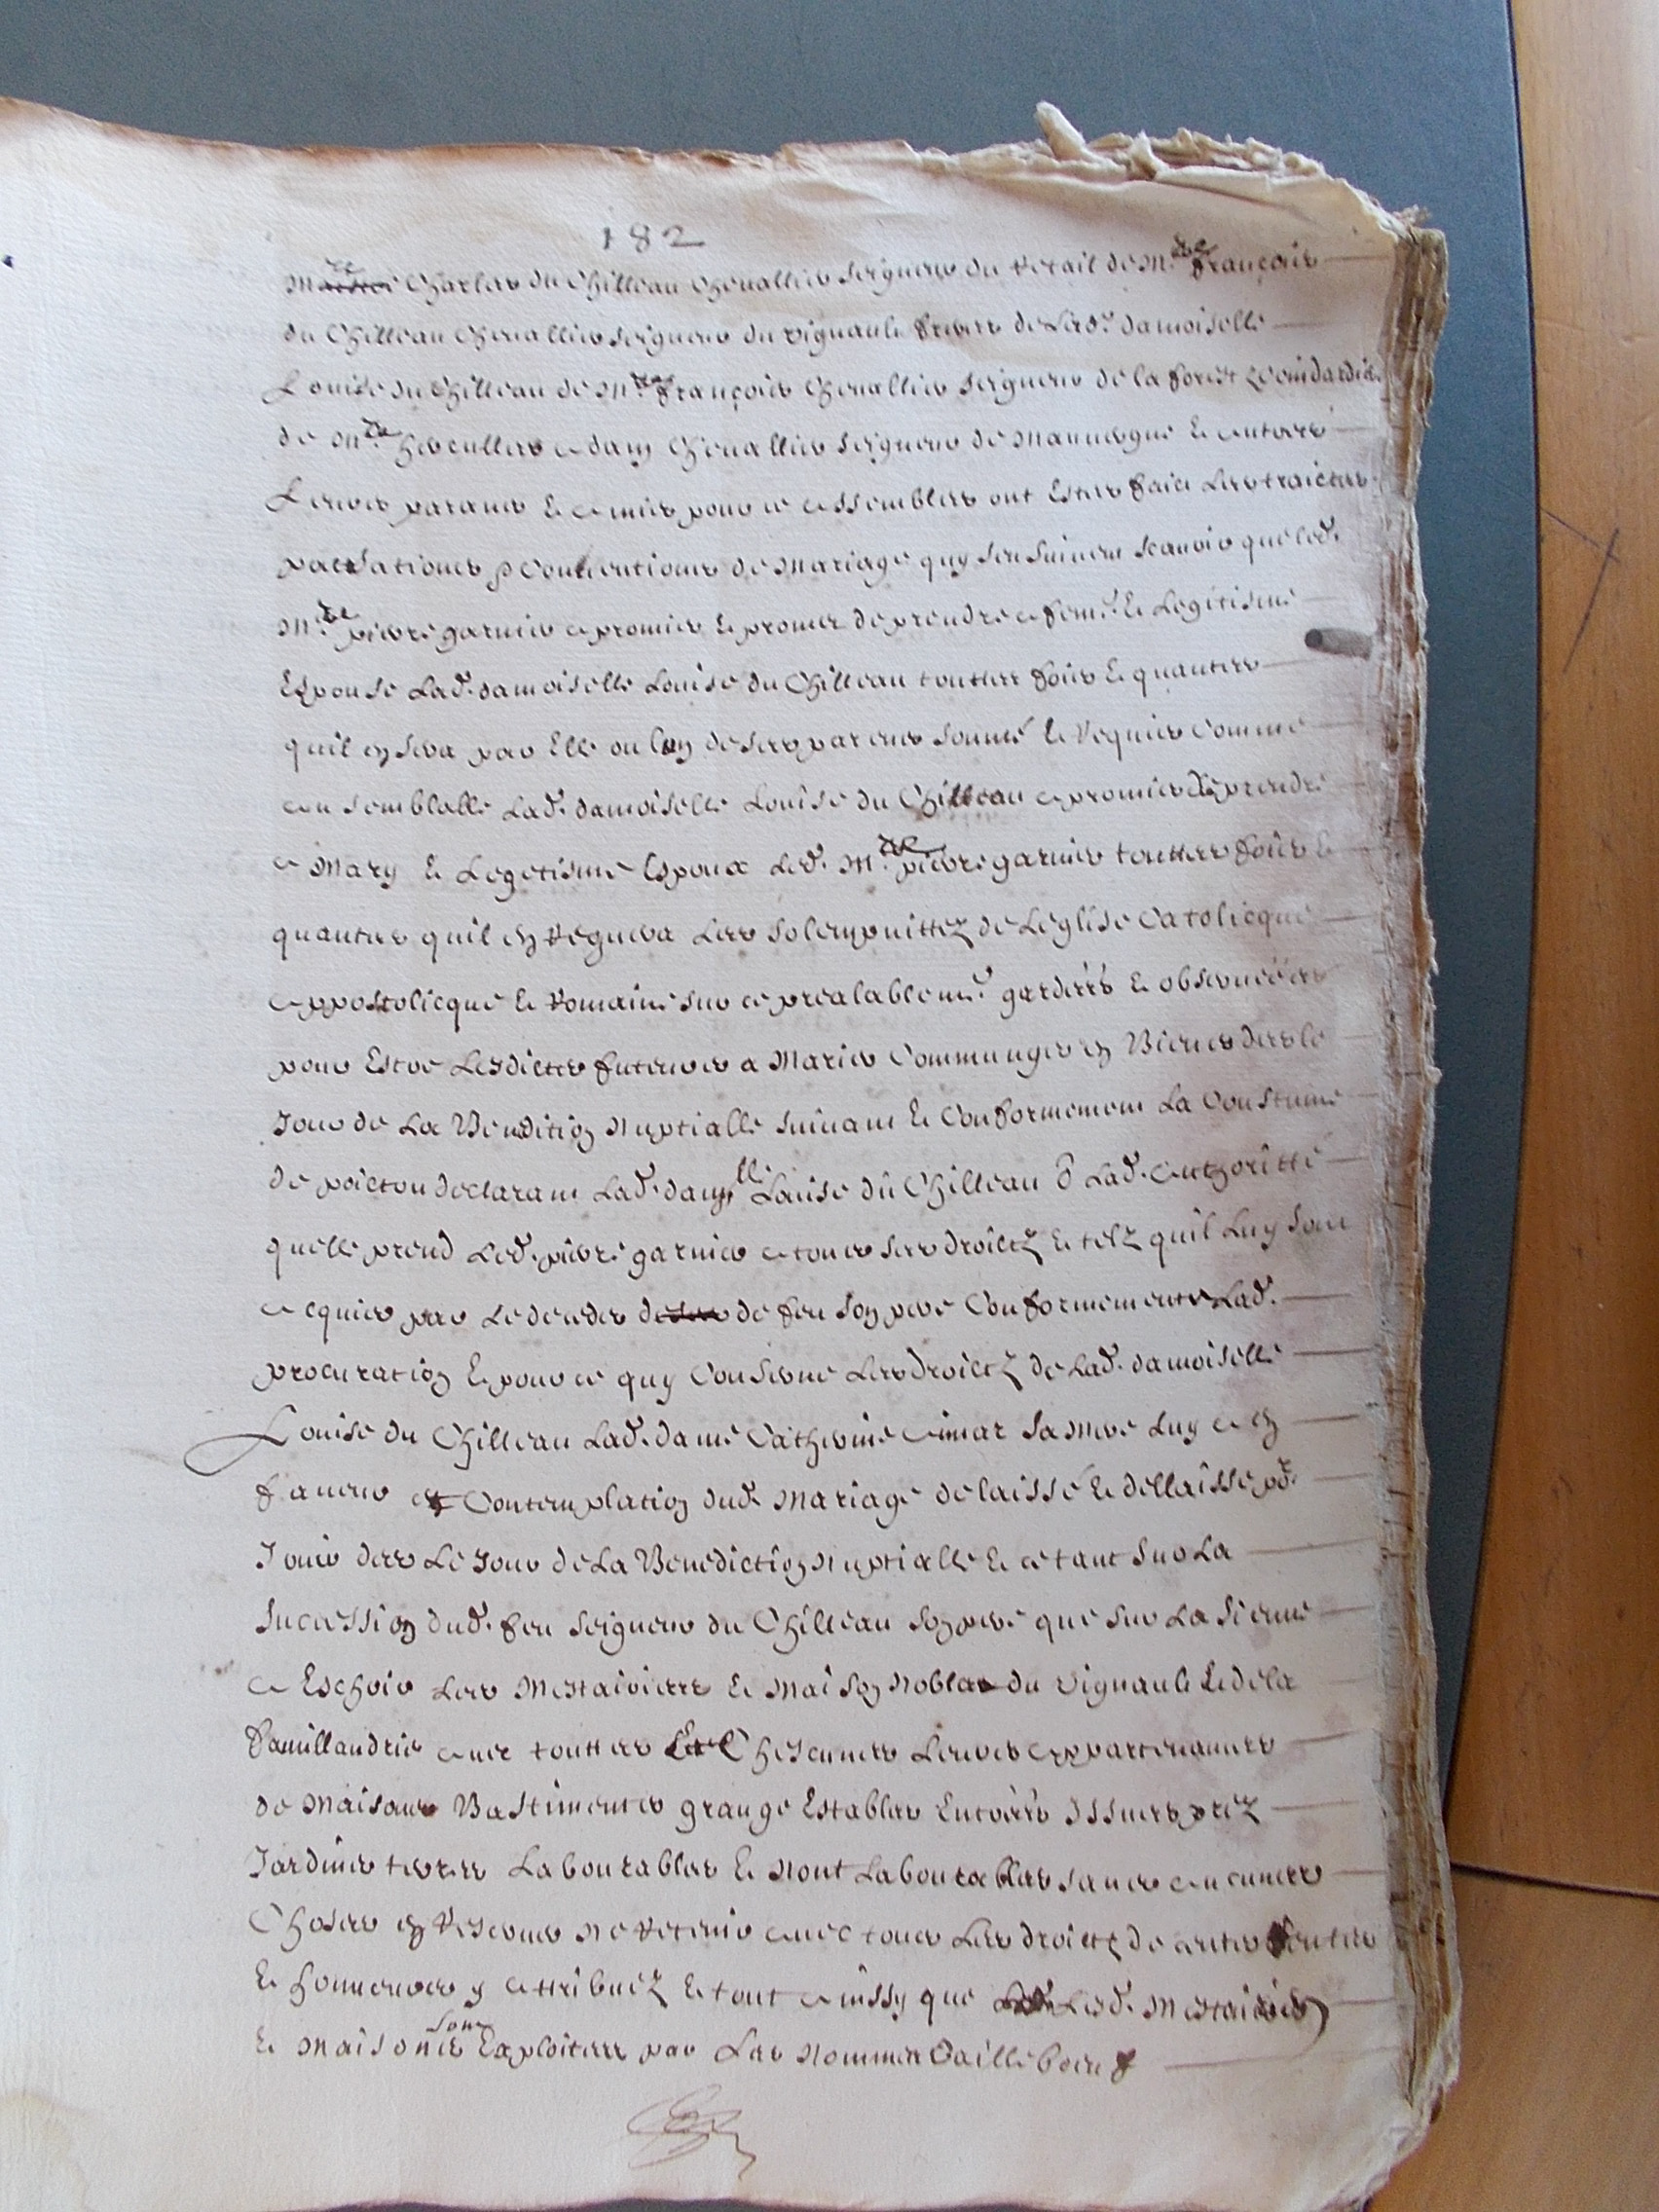 182
Mre Charles du Chilleau Chevallier seigneur du Retail de Mre françois
du Chilleau Chevallier seigneur du vignault freres de Lad. damoiselle
Louise du Chilleau de Mre françois Chevallier seigneur de la forest
de Mre herculles adam Chevallier seigneur de et autres
Leurs parans et amis pour ce assembles ont Estes faict Les traictes
pactations Conventions de Mariage quy sen suivent scavoir que led.
Mre pierre garnier a promis et promet de prendre a fem. et Legitisme
Espouse Lad. damoiselle Louise du Chilleau touttes fois et quantes
quil en sera par Elle ou lun de ses parens sommé et Requis Comme
au semblable Lad. damoiselle Louise du Chilleau a promis de prendre
a Mary et Legetisme Espoux Led. Mre pierre garnier touttes fois et
quantes quil en Requera Les solempnittez de Leglise Catolicque
appostolicque et Romaine sur ce prealablemt. gardées et observées
pour Estre Lesdictes futeurs a Marier Communs en Biens des le
Jour de La Bendition Nuptialle suivant et Conformement La Coustume
de poictou declarant Lad. damlle Louise du Chilleau Lad. authoritté
quelle prend Led. pierre garnier a tous ses droictz et telz quil Luy sont
acquis par Le deceds de feu son pere Conformement a Lad.
procuration Et pour ce quy Conserne Les droictz de Lad. damoiselle
Louise du Chilleau Lad. dame Catherine aimar sa Mere Luy a en
faveur et Contemplation dud. Mariage delaissé et dellaisse pr.
Jouir des Le Jour de La Benediction Nuptialle et ce tant sur La
sucession dud. feu seigneur du Chilleau son pere que sur La sienne
a Eschoir Les Mestairies et Maison Nobles du vignault et de la
avec touttes Chescunes Leurs appartenances
de Maisons Bastiments grange Estables Entrées Issues prez
Jardins terres Labourables et Nont Labourables sans aucunes
Choses en Reserver Ne Retenir avec tous Les droictz de
et honneurs y attribuez et tout ainssy que Lesd. Mestairies
et Maisons sont Exploitees par Les Nommes Bailleboeuf